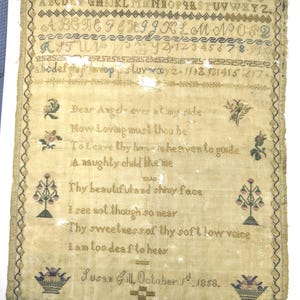 ABCDEFGHIJKLMNOPQRSTUVWXYZ
1 2 3 4 5 6 7 8
Dear Angel ever at my side
How Loving must thou be
To Leave thy home in heaven to guide
A naughty child like me
Thy beautiful and shiny face
I see not though so near
Thy sweetness of thy soft low voice
I am too deaf to hear
Susan Gill, October 1st, 1858.